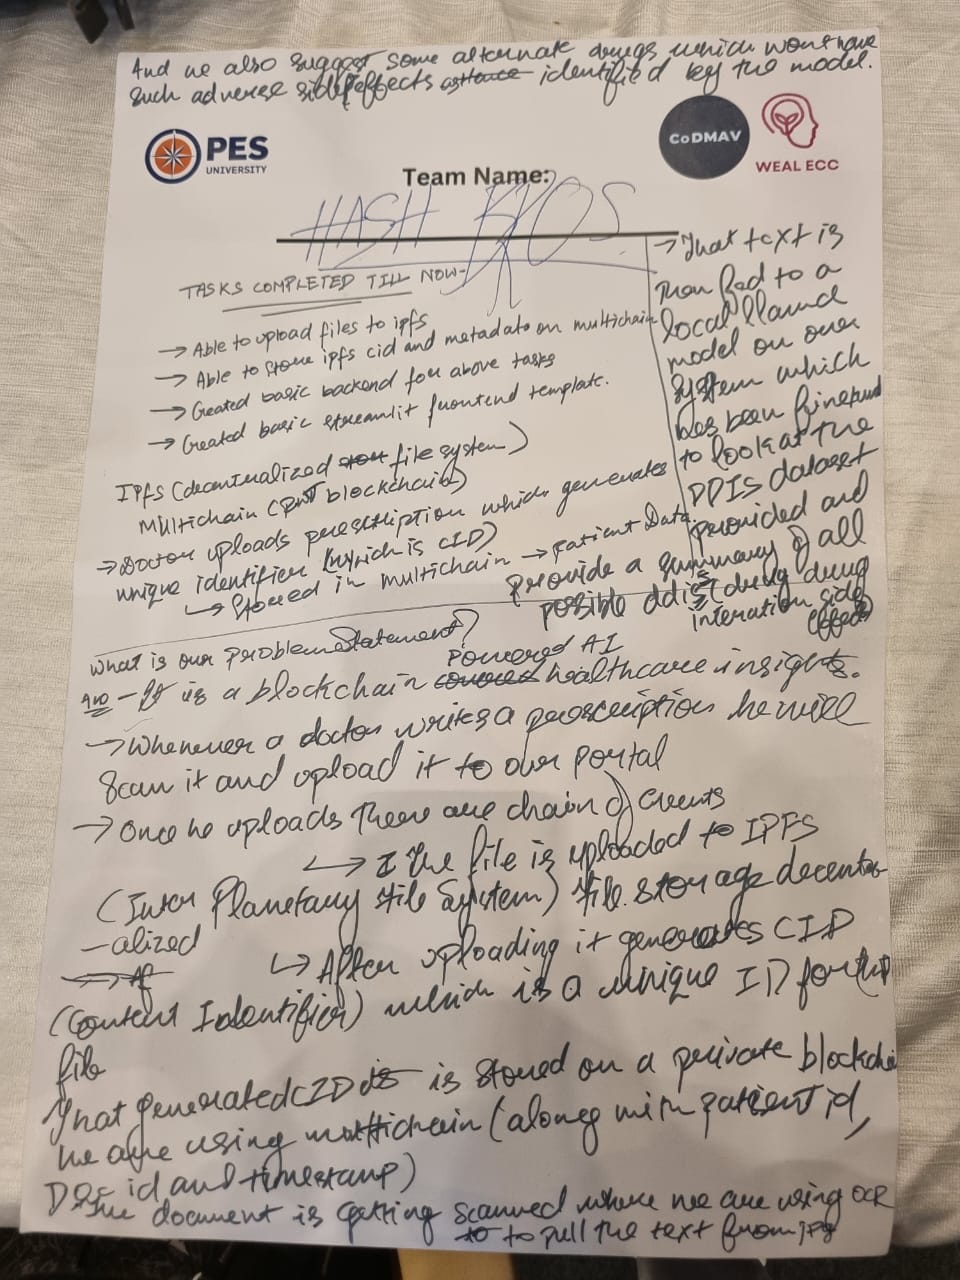 And we also suggest some alternate drugs which wont have
such adverse side effects identified by the model.
PES
UNIVERSITY
CoDMAV
WEAL ECC
Team Name:
HASH BROS
TASKS COMPLETED TILL NOW-
→ Able to upload files to ipfs
→ Able to store ipfs cid and metadata on multichain
→ Created basic backend for above tasks
→ Created basic streamlit frontend template.
IPFS (decentralized file system)
Multichain (pvt blockchain)
→ Doctor uploads prescription which generates
unique identifier (which is CID)
↳ Stored in multichain → Patient Data
→ That text is
then fed to a
local llama
model on our
system which
has been finetuned
to look at the
DDIS dataset
provided and
provide a summary of all
possible ddis (drug drug
interation side
effects)
What is our problem statement?
Ans - It is a blockchain Powered AI healthcare insights.
→ Whenever a doctor writes a prescription he will
scan it and upload it to our portal
→ Once he uploads there are chain of events
↳ The file is uploaded to IPFS
(Inter Planetary File System) file storage decentr
-alized
↳ After uploading it generates CID
(Content Identifier) which is a unique ID for the
file
That generated CID is stored on a private blockchain
we are using multichain (along with patient id,
Doc id and timestamp)
The document is getting scanned where we are using OCR
to pull the text from jpg